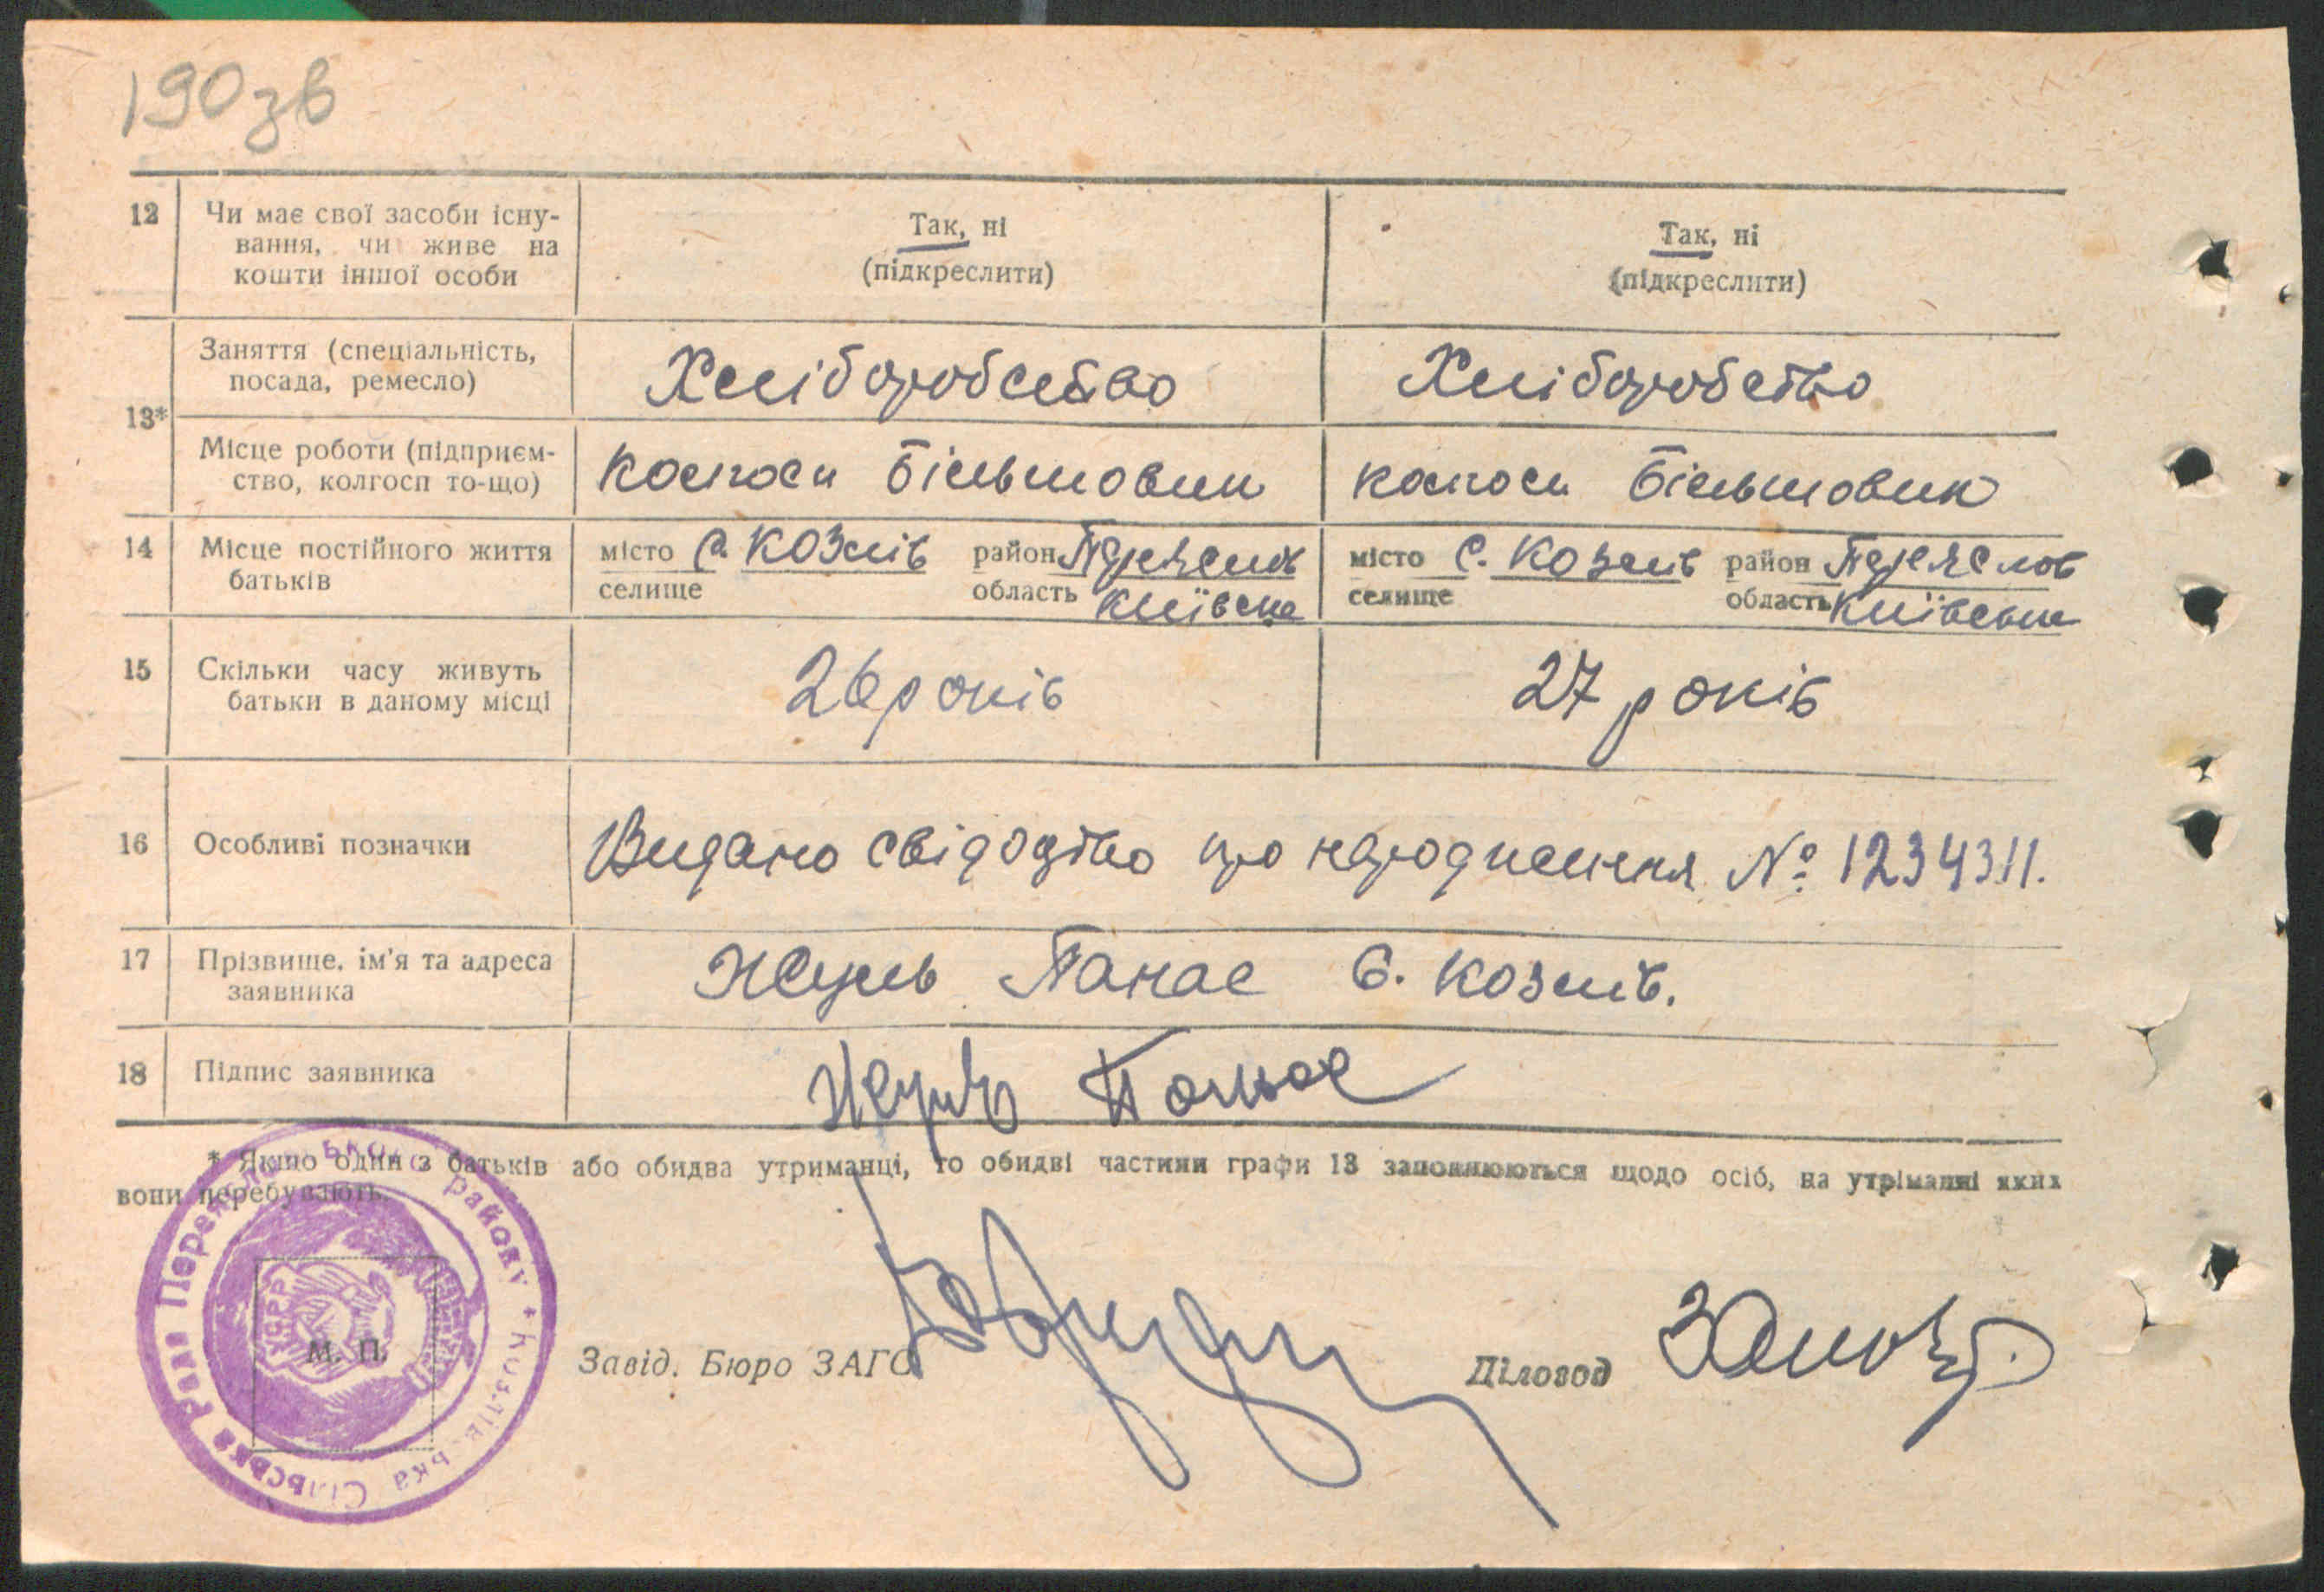 190зв
12 Чи має свої засоби існу-
вання, чи живе на
кошти іншої особи
Так, ні
(підкреслити)
Так, ні
(підкреслити)
13*
Заняття (спеціальність,
посада, ремесло)
Хліборобство
Хліборобство
Місце роботи (підприєм-
ство, колгосп то-що)
колгосп більшовик
колгосп більшовик
14 Місце постійного життя
батьків
місто с. Козлів район
селище область Київська
місто с. Козлів район Переяслов
селище область Київська
15 Скільки часу живуть
батьки в даному місці
26 років
27 років
16 Особливі позначки
Видано свідоцтво про народження № 1234311.
17 Прізвище, ім'я та адреса
заявника
Панас с. Козлів.
18 Підпис заявника
Панас
* Якщо один з батьків або обидва утриманці, то обидві частини графи 13 заповнюються щодо осіб, на утріманні яких
вони перебувають.
Козлівська Сільська Рада Переяславського району
УСРР
М. П.
Завід. Бюро ЗАГС
Діловод